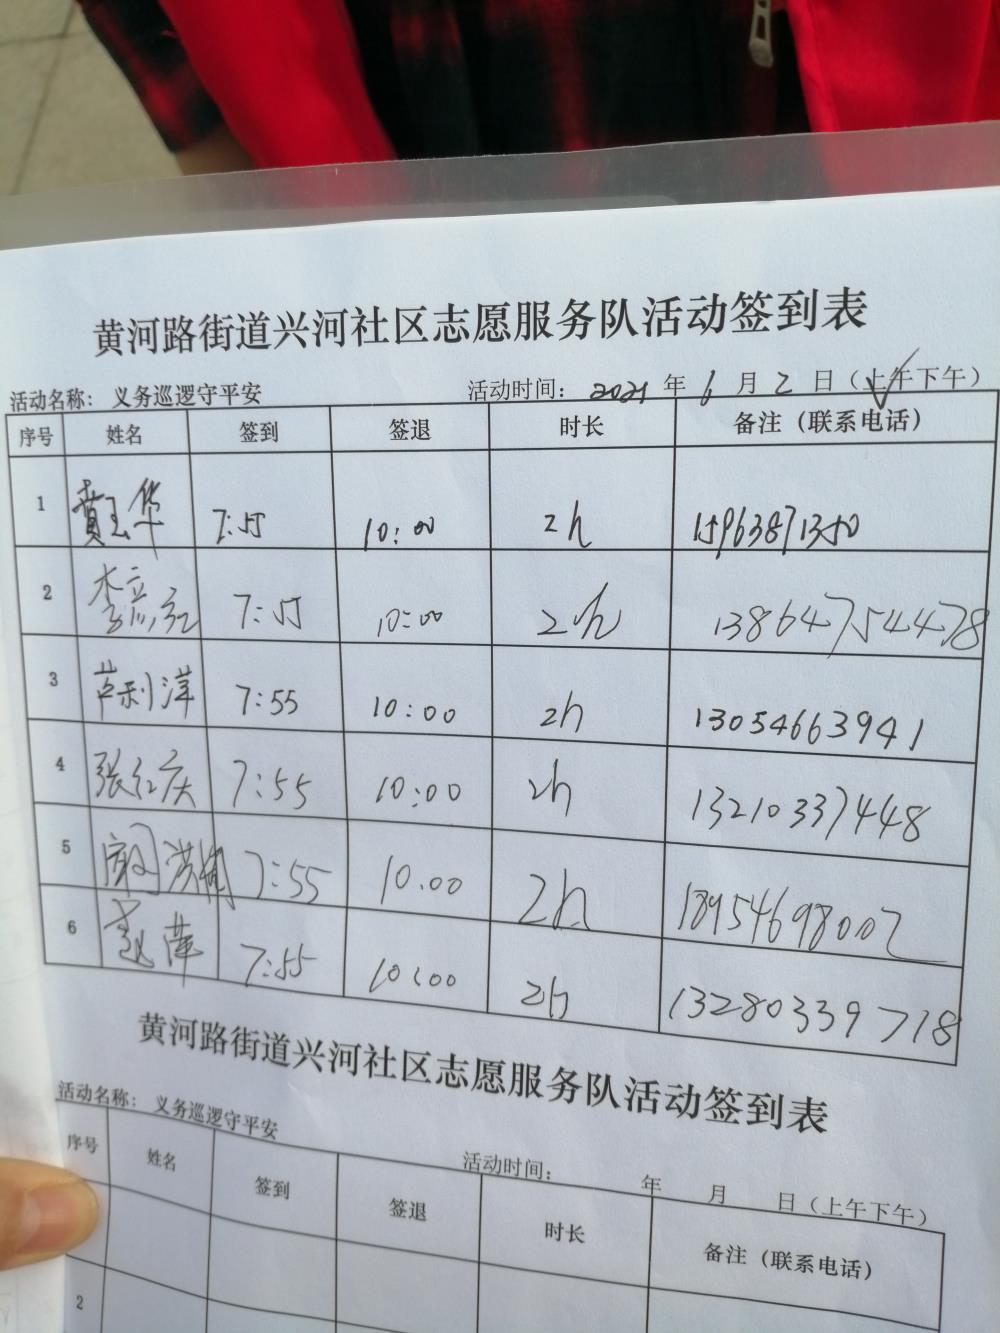 黄河路街道兴河社区志愿服务队活动签到表
活动名称：义务巡逻守平安 活动时间：2021年6月2日（上午下午）
序号 姓名 签到 签退 时长 备注（联系电话）
1 黄玉华 7:55 10:00 2h 15963871350
2 李 红 7:55 10:00 2h 13864754478
3 芦利洋 7:55 10:00 2h 13054663941
4 张红庆 7:55 10:00 2h 13210337448
5 7:55 10.00 2h 18954698002
6 萍 7:55 10:00 2h 13280339718
黄河路街道兴河社区志愿服务队活动签到表
活动名称：义务巡逻守平安 活动时间： 年 月 日（上午下午）
序号 姓名 签到 签退 时长 备注（联系电话）
2